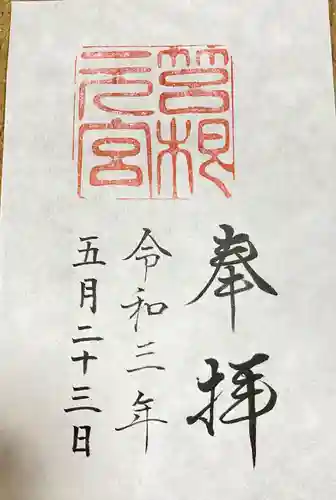 箱根元宮
奉拝
令和三年
五月二十三日